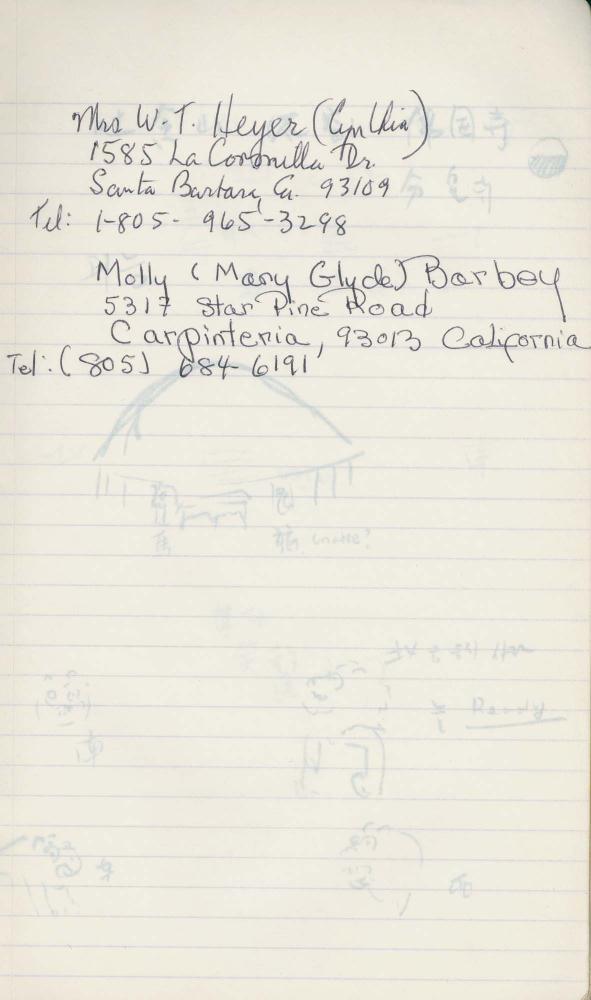 Mrs W. T. Heyer (Cynthia)
1585 La Coronilla Dr.
Santa Barbara, Ca. 93109
Tel: 1-805-965-3298
Molly (Mary Glyde) Barbey
5317 Star Pine Road
Carpinteria, 93013 California
Tel: (805) 684-6191